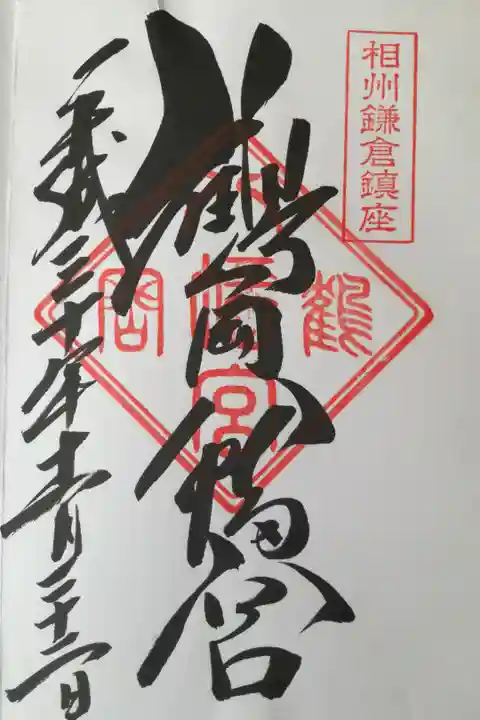 相州鎌倉鎮座
鶴岡八幡宮
平成三十年十一月二十二日
鶴
八幡宮
岡